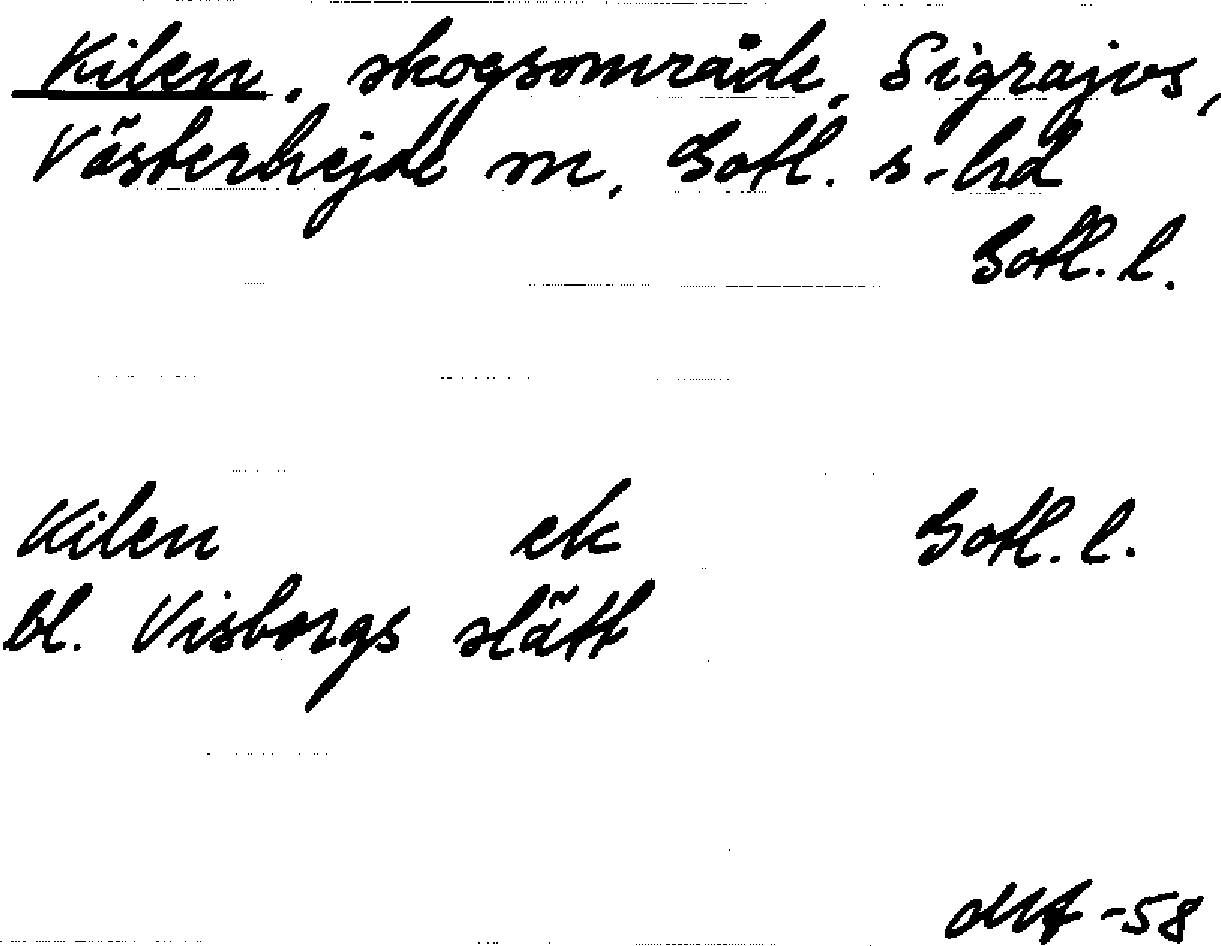 Kilen, skogsområde, Sigrajvs,
Västerhejde sn, Gotl. s. hd
Gotl. l.
Kilen ek Gotl. l.
bl. Visborgs slätt
-58